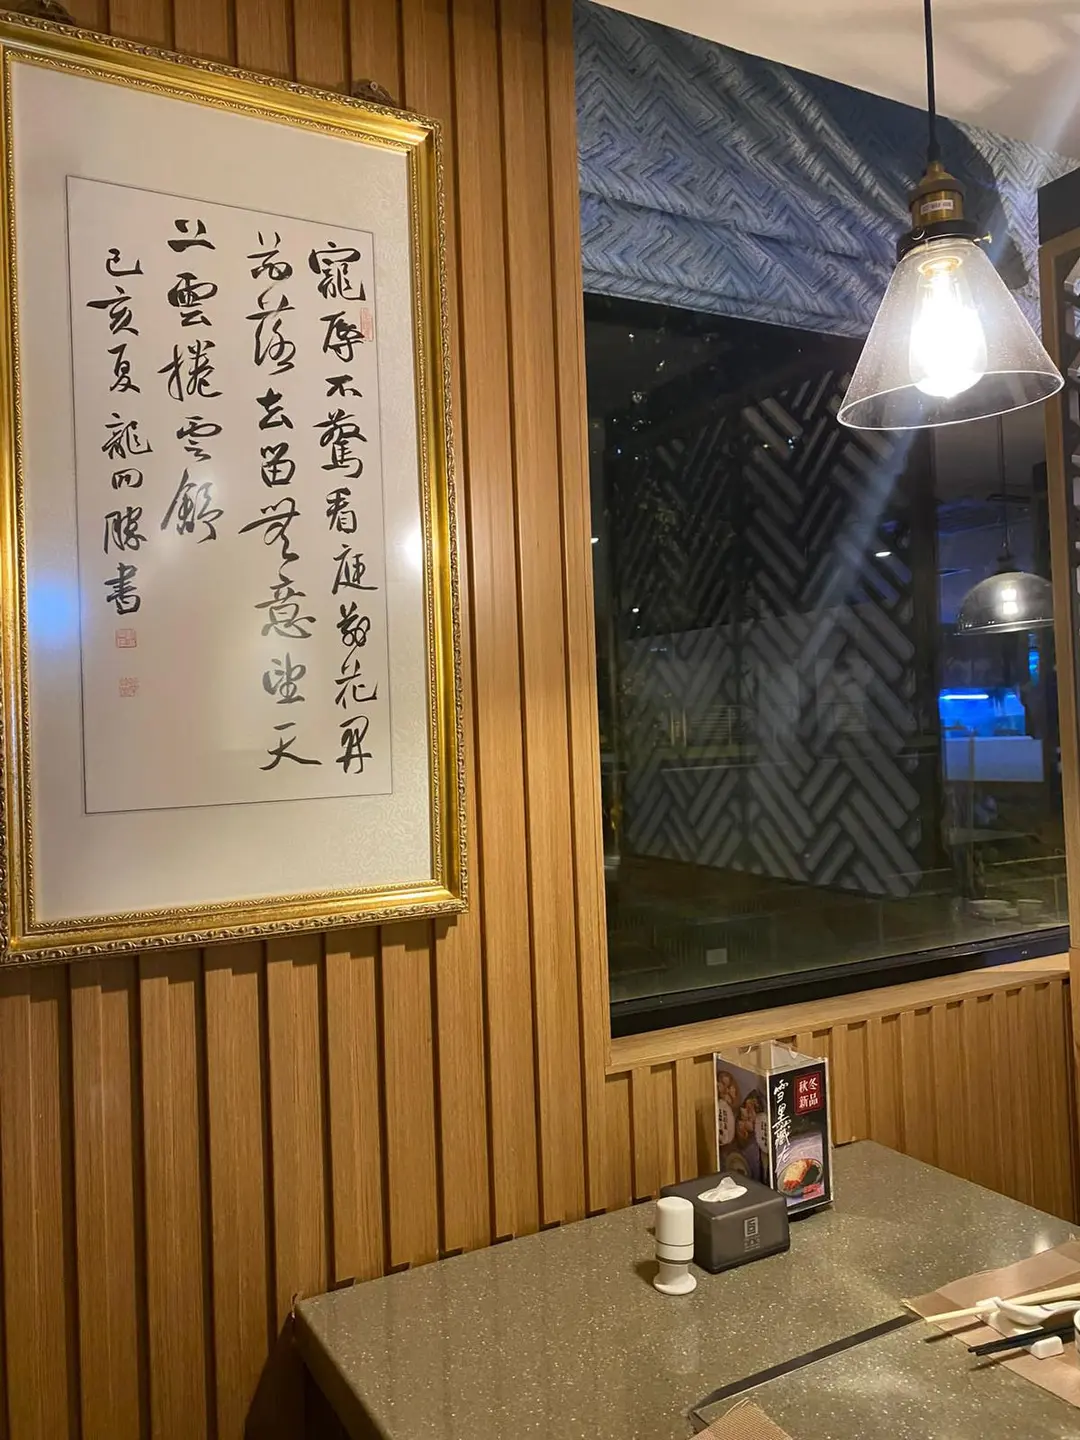 寵辱不驚看庭前花開
花落去留無意望天
上雲捲雲舒
己亥夏龍四勝書
秋冬
新品
雪里藏龙